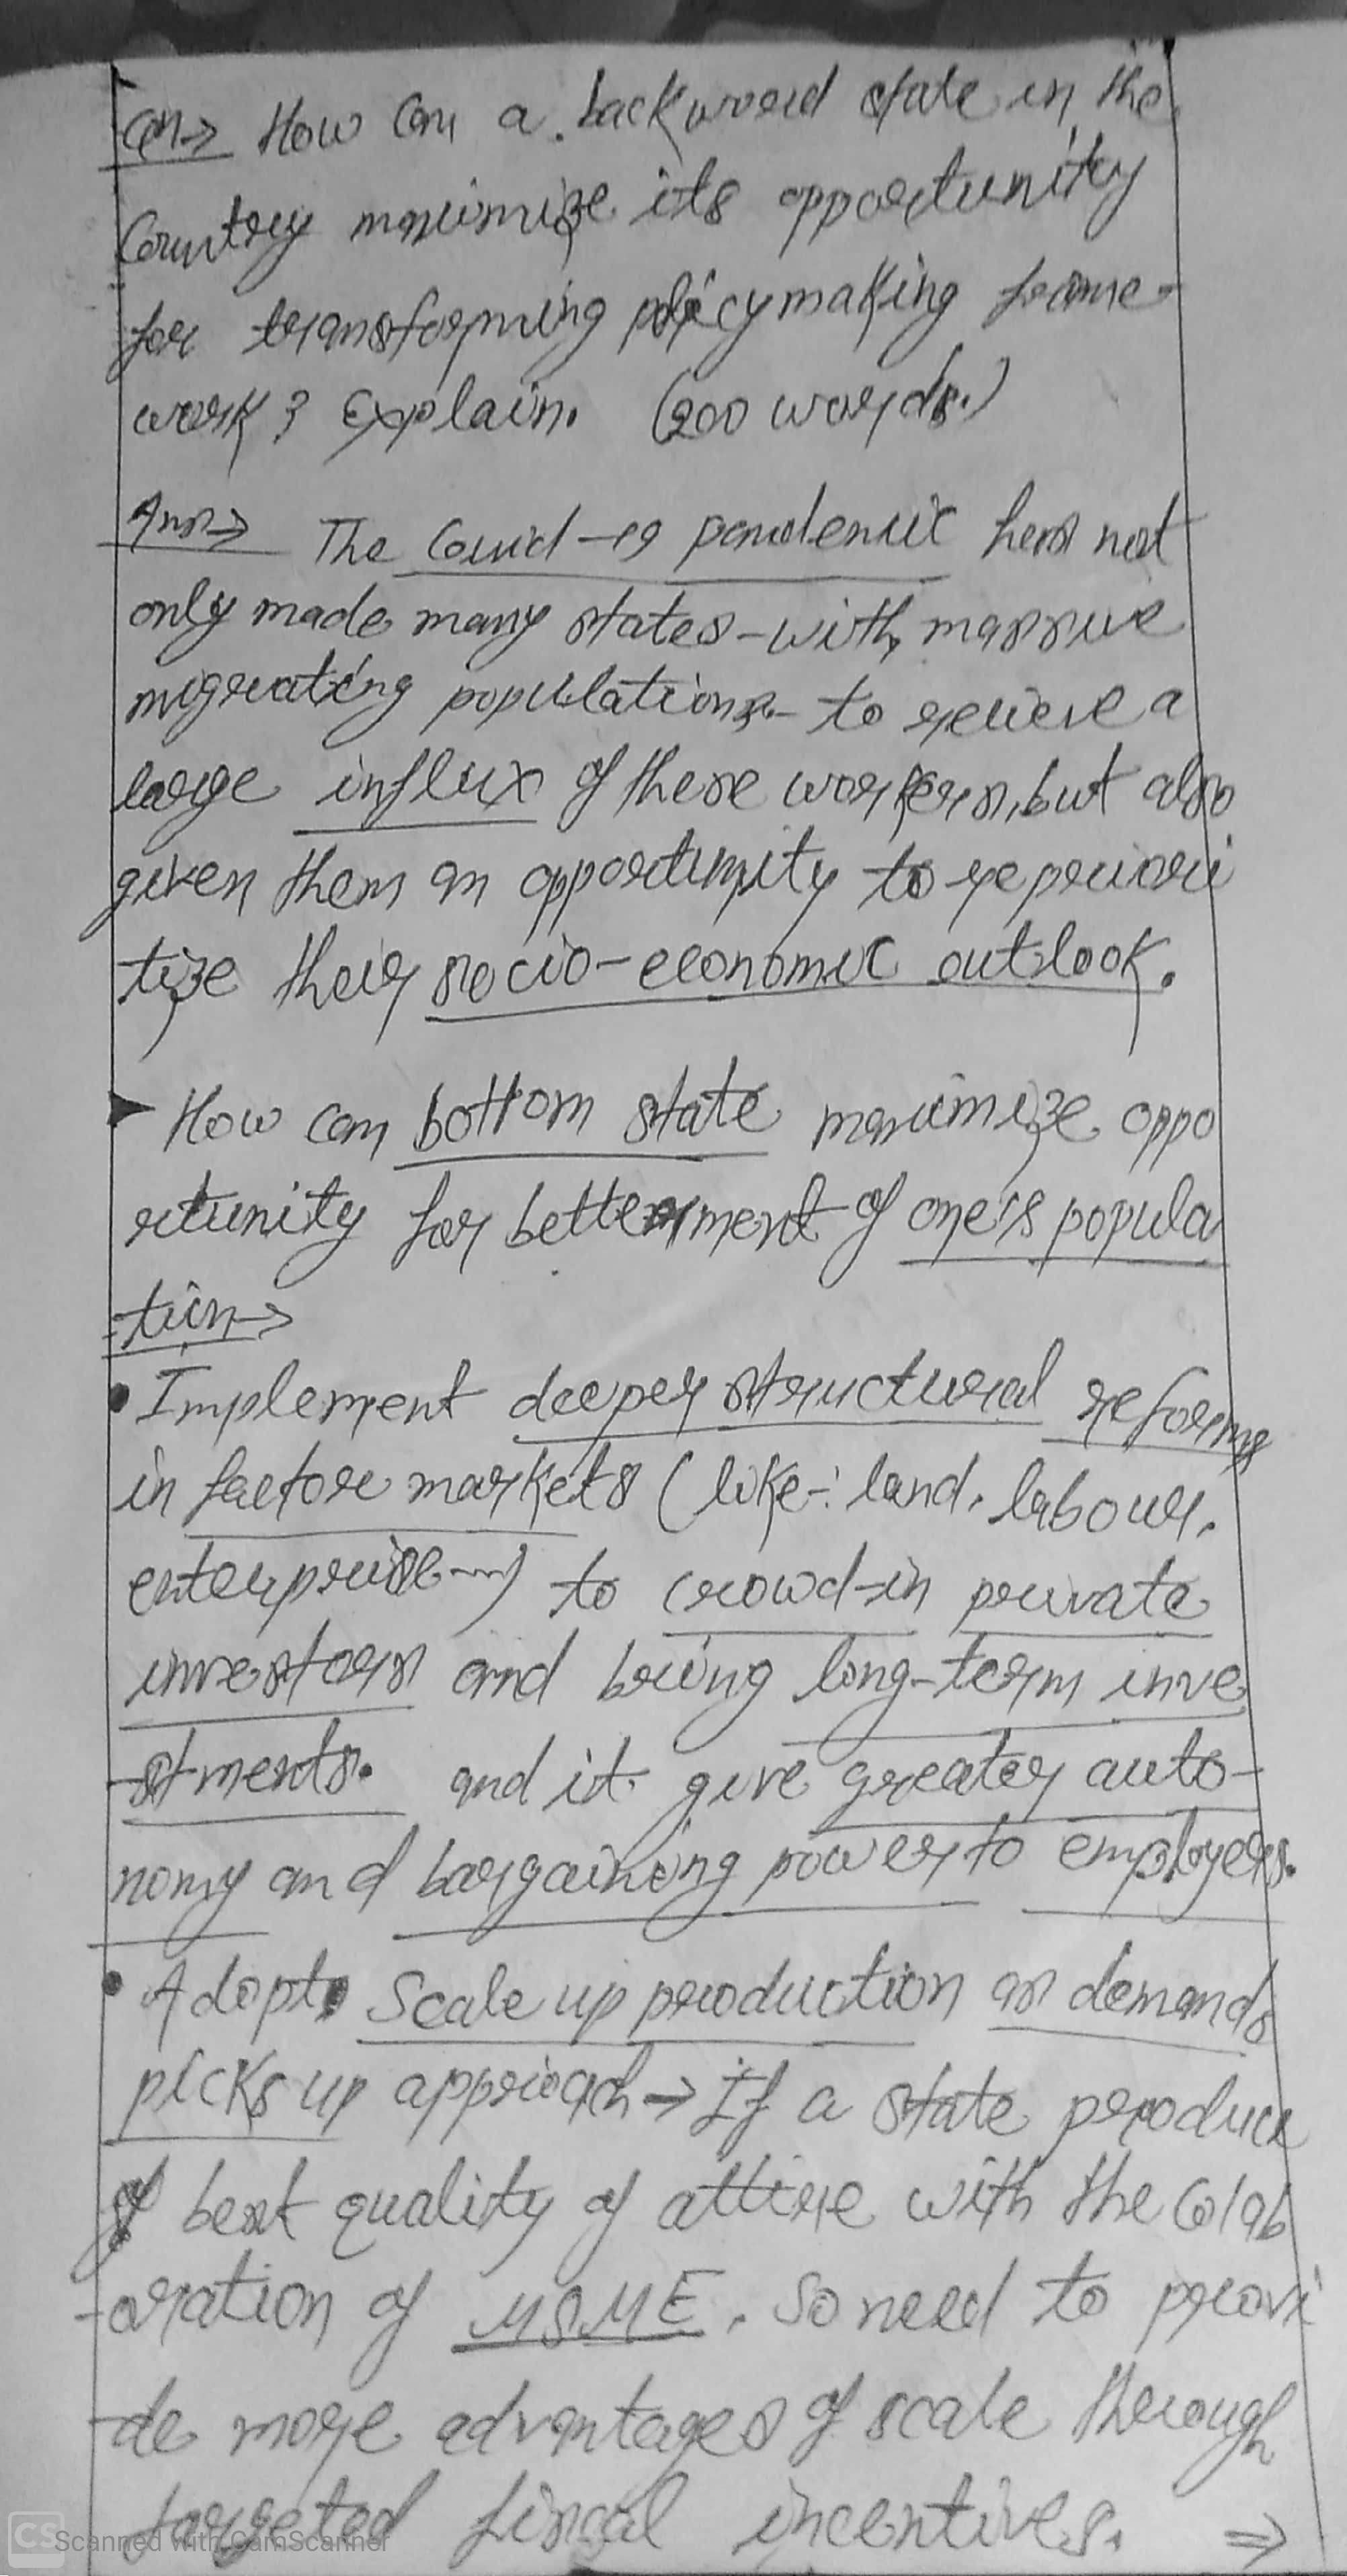 Qn→ How can a backward state in the
Country maximize its opportunity
for transforming policymaking frame-
work? Explain. (200 words.)
Ans→ The Covid-19 pandemic has not
only made many states - with massive
migrating populations - to recieve a
large influx of these workers, but also
given them an opportunity to repriori
tize their socio-economic outlook.
➤ How can bottom state maximize oppo
rtunity for betterment of one's popula
-tion→
• Implement deeper structural reforms
in factore markets (like-: land, labour,
enterprise---) to crowd-in private
investors and bring long-term inve
-stments. and it give greater auto-
nomy and bargaining power to employers.
• Adopt Scale up production as demands
picks up approach → If a state produce
of best quality of attire with the Colab
-oration of MSME. So need to provi
-de more advantages of scale through
targeted fiscal incentives. ⇒
CS Scanned with CamScanner